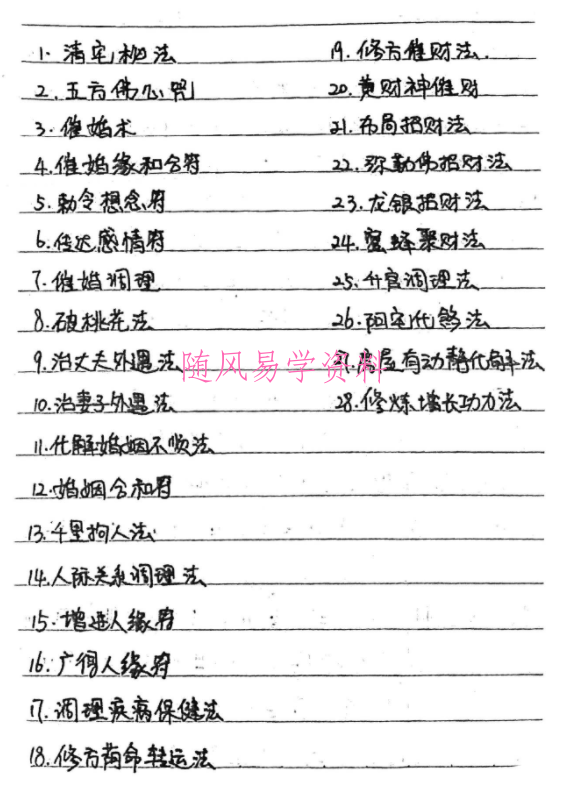 1. 清宅秘法
2. 五方佛心咒
3. 催婚术
4. 催婚缘和合符
5. 勅令想念符
6. 传达感情符
7. 催婚调理
8. 破桃花法
9. 治丈夫外遇法
10. 治妻子外遇法
11. 化解婚姻不顺法
12. 婚姻合和符
13. 千里拘人法
14. 人际关系调理法
15. 增进人缘符
16. 广得人缘符
17. 调理疾病保健法
18. 修方荷命转运法
19. 修方催财法.
20. 黄财神催财
21. 布局招财法
22. 弥勒佛招财法
23. 龙银招财法
24. 蜜蜂聚财法
25. 升官调理法
26. 阳宅化煞法
27. 房屋有动静化解法
28. 修炼增长功力法
随风易学资料